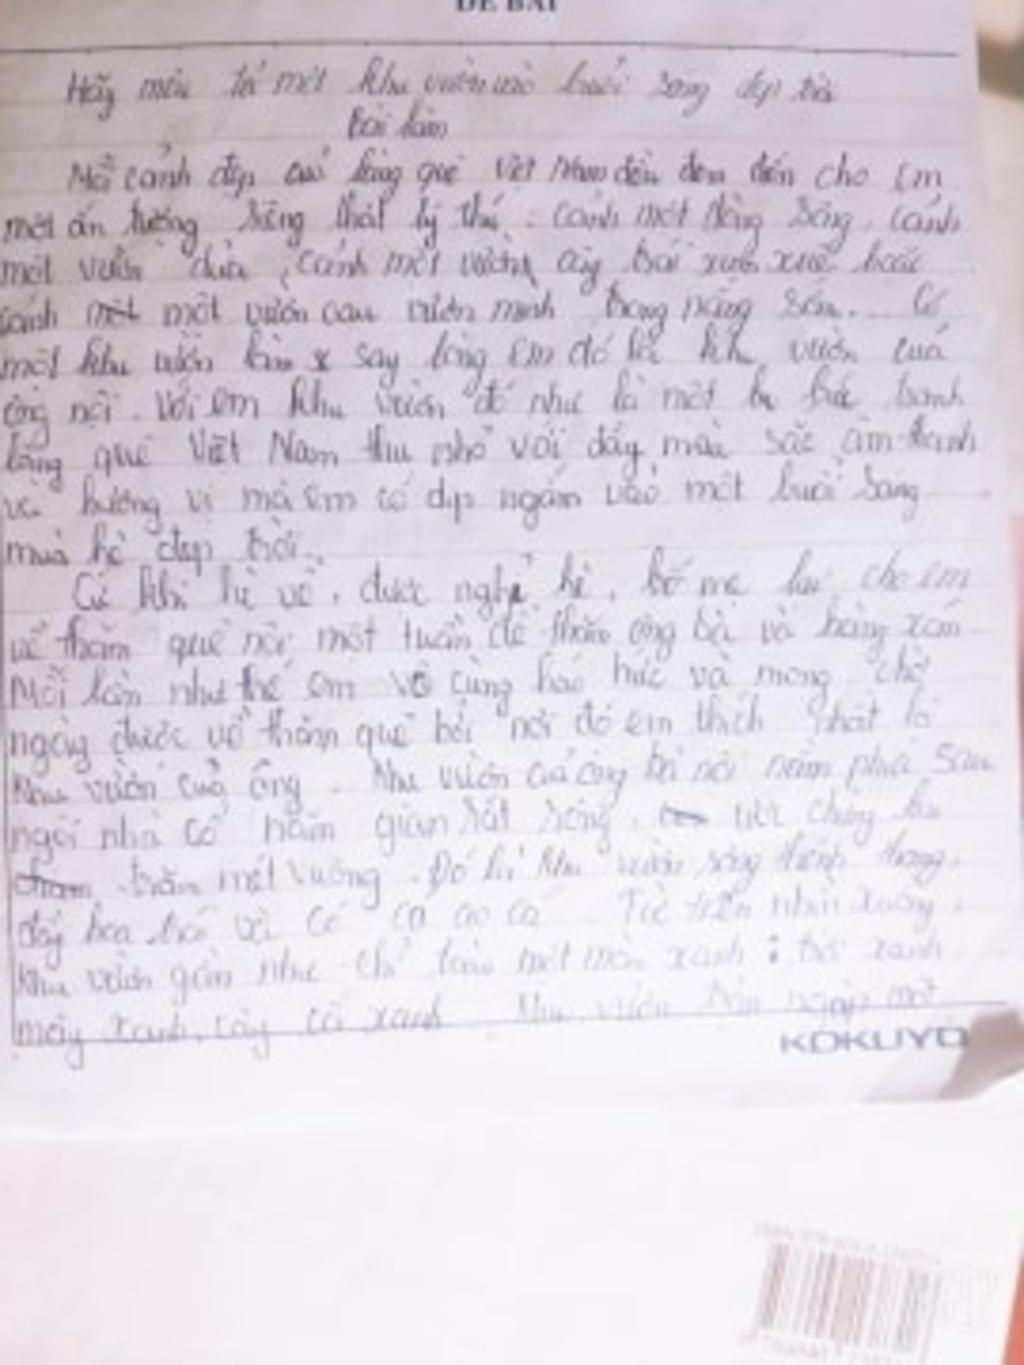 ĐỀ BÀI
Hãy miêu tả một khu vườn vào buổi sáng đẹp trời
Bài làm
Mỗi cảnh đẹp của làng quê Việt Nam đều đem đến cho em
một ấn tượng riêng thật lý thú: cảnh một dòng sông, cảnh
một vườn dừa, cảnh một vườn cây trái xum xuê hoặc
cảnh một vườn cau vươn mình trong nắng sớm... Có
một khu vườn làm say lòng em đó là khu vườn của
ông nội. Với em khu vườn đó như là một bức tranh
làng quê Việt Nam thu nhỏ với đầy màu sắc âm thanh
và hương vị mà em có dịp ngắm vào một buổi sáng
mùa hè đẹp trời.
Cứ khi hè về, được nghỉ hè, bố mẹ lại cho em
về thăm quê nội một tuần để thăm ông bà và hàng xóm
Mỗi lần như thế em vô cùng háo hức và mong chờ
ngày được về thăm quê bởi nơi đó em thích nhất là
khu vườn của ông. Khu vườn của ông bà nội nằm phía sau
ngôi nhà cổ năm gian rất rộng, ước chừng
trăm mét vuông. Đó là khu vườn rộng thênh thang,
đầy hoa trái và có cả ao cá. Từ trên nhìn xuống,
khu vườn gần như chỉ toàn một màu xanh: trời xanh
mây xanh, cây cỏ xanh. Khu vườn tràn ngập một
KOKUYO